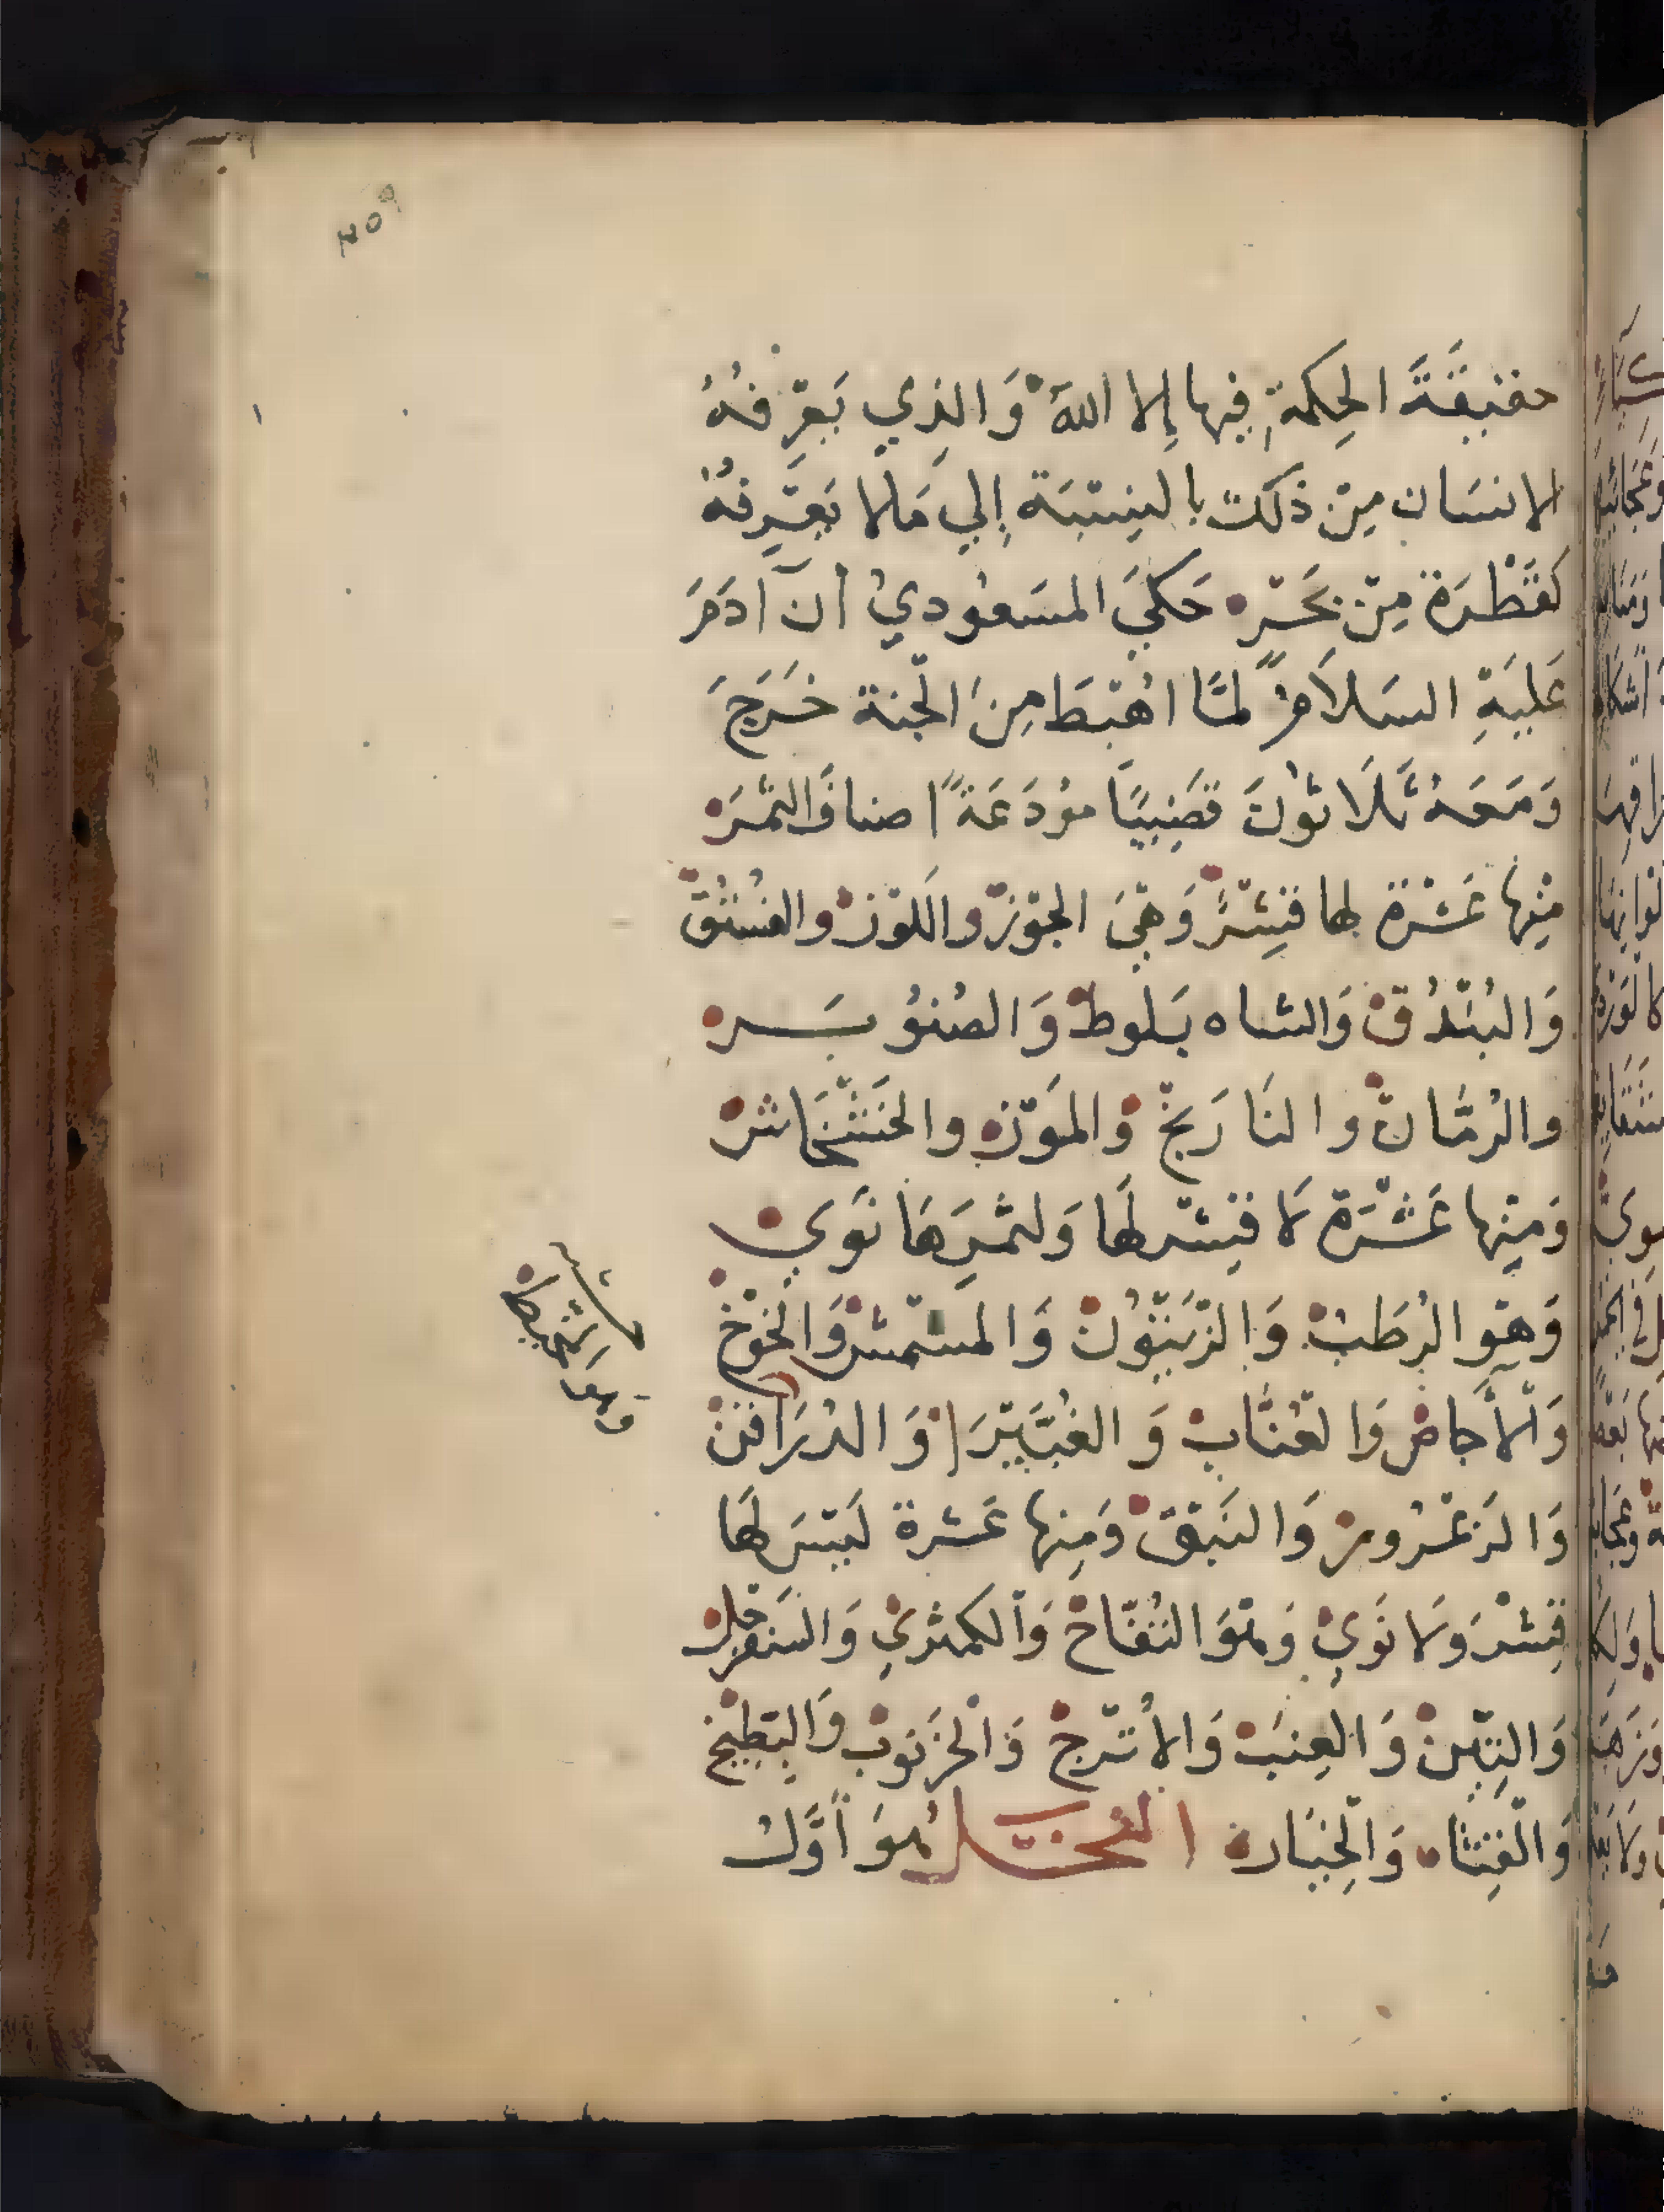 ٢٥٩
حقيقَةَ الحِكمةِ فيها إلا اللهُ وَالذِي يَعرِفهُ
الانسَان مِن ذلك بالنِسبَة إلي مَالا يَعرِفهُ
كقَطْرَة مِن بَحر حَكيَ المسَعُوديُ أن آدَمَ
عَليَهِ السَلاَمُ لمَّا اهْبَطَ مِنَ الجَنة خَرَجَ
وَمَعَهُ ثَلَاثُونَ قَضِيبًا مُودَعَةً اصنافَ الثمَر
مِنها عَشْرَة لها قِشرٌ وَهيَ الجَوز واللَوز والفُسْتُقْ
وَالبُنْدُق وَالشاه بَلوط وَالصُنوُبَر
والرُمَّان والنَارَنج وَالموَز والخَشْخَاش
وَمِنها عَشْرَة لا قِشر لهَا وَلثمَرِهَا نَوَي
وَهوَ الرُطَب وَالزَيتُون وَالمشمش وَالخَوْخ
وَالأجاص وَالعُنَّاب وَالغُبَيرَا وَالدُرَاقن
وَالزعْرُور وَالنَبق وَمِنها عَشرة لَيسَ لهَا
قِشْر وَلا نَوَي وَهوَ التُفّاح وَالكمثرَي وَالسَفَرجل
وَالتِين وَالعِنَب وَالأتْرج وَالخَرنوب وَالبِطِيخ
وَالقِثاء وَالخِيَار النخل هُوَ أَوَّل
وَهوَ المُخيط